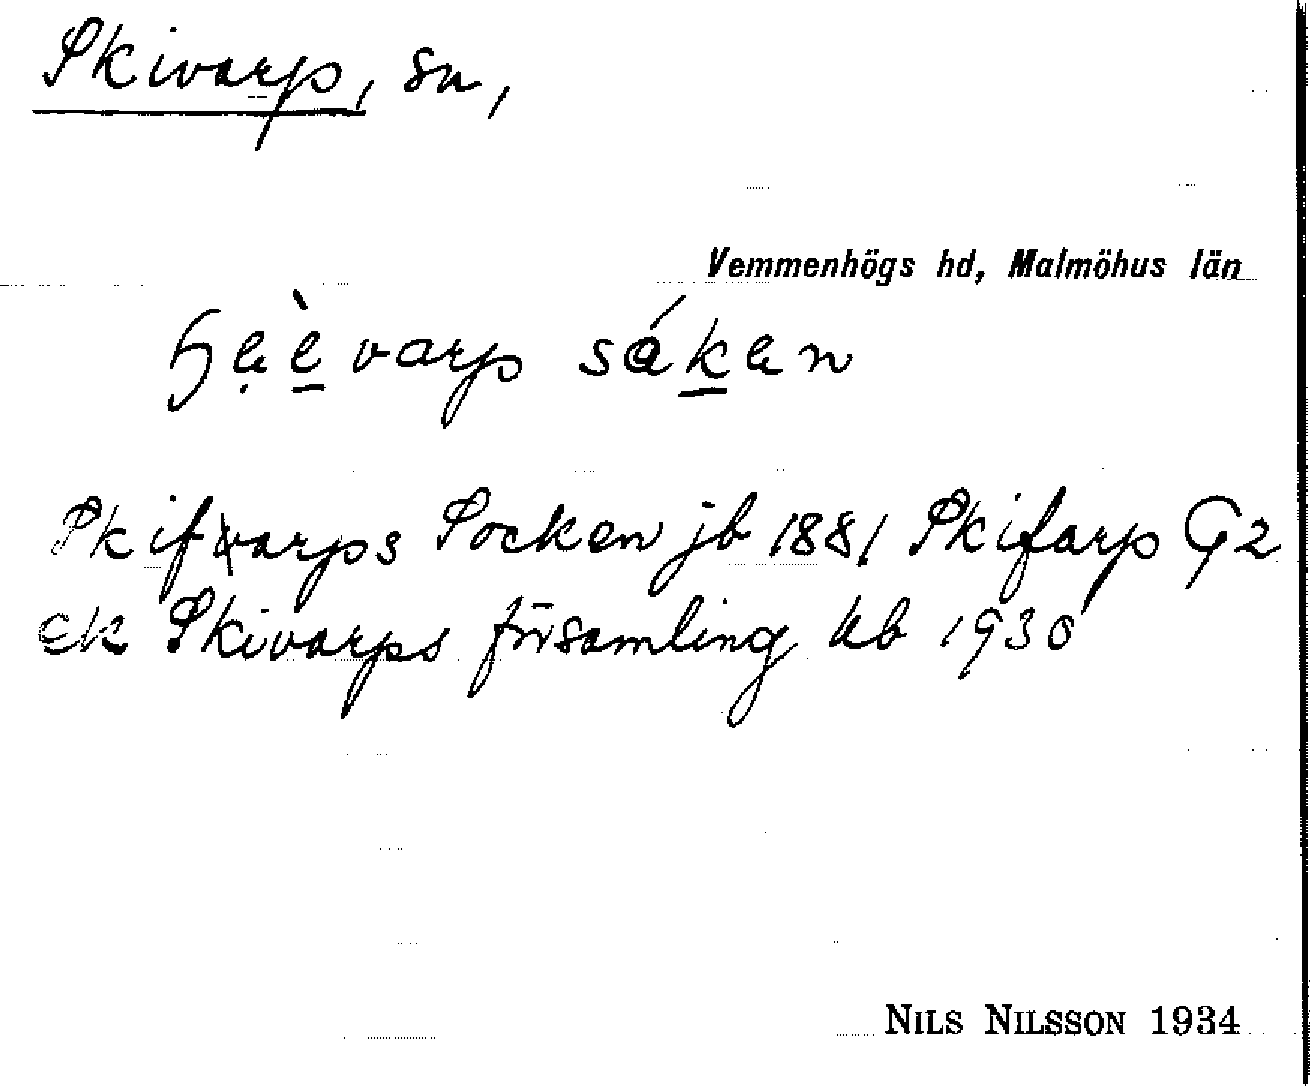 Skivarp, sn,
Vemmenhögs hd, Malmöhus län
Skifvarps Socken jb 1881 Skifarp G2
ek Skivarps församling kb 1930
NILS NILSSON 1934